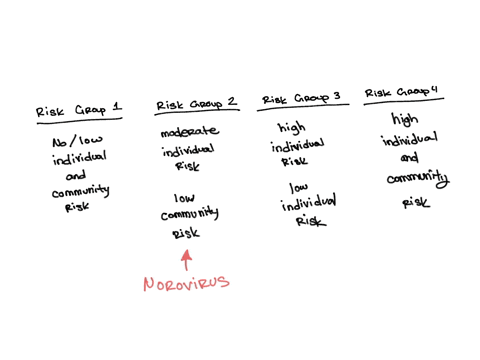 Risk Group 1
No/low
individual
and
community
Risk
Risk Group 2
moderate
individual
Risk
low
community
Risk
NOROVIRUS
Risk Group 3
high
individual
Risk
low
individual
Risk
Risk Group 4
high
individual
and
community
Risk